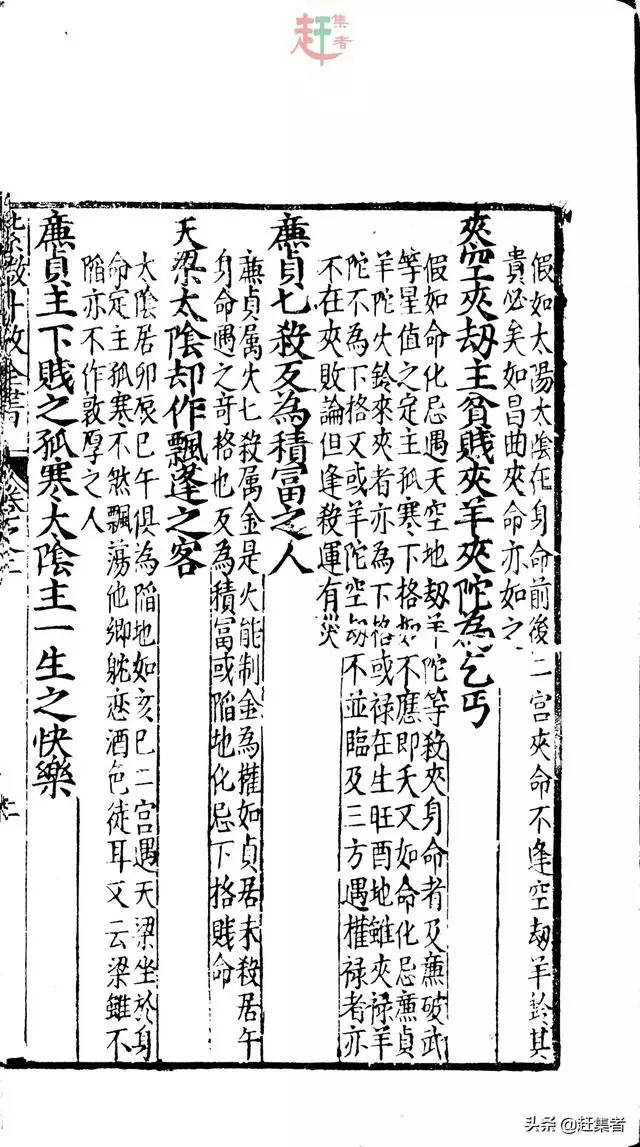 赶集者
假如太陽太陰在身命前後二宮夾命不逢空刼羊鈴其
貴必矣如昌曲夾命亦如之
夾空夾刼主貧賤夾羊夾陀為乞丐
假如命化忌遇天空地刼羊陀等殺夾身命者及亷破武
等星值之定主孤寒下格如不應即夭又如命化忌亷貞
羊陀火鈴來夾者亦為下格或禄在生旺酉地雖夾禄羊
陀不為下格又或羊陀空刼不並臨及三方遇權禄者亦
不在夾敗論但逢殺運有災
亷貞七殺反為積富之人
亷貞属火七殺属金是火能制金為權如貞居未殺居午
身命遇之奇格也反為積富或陷地化忌下格賤命
天梁太陰却作飄蓬之客
太陰居卯辰巳午俱為陷地如亥巳二宮遇天梁坐於身
命定主孤寒不然飄蕩他鄉躭恋酒色徒耳又云梁雖不
陷亦不作敦厚之人
亷貞主下賤之孤寒太陰主一生之快樂
全書
头条 @赶集者